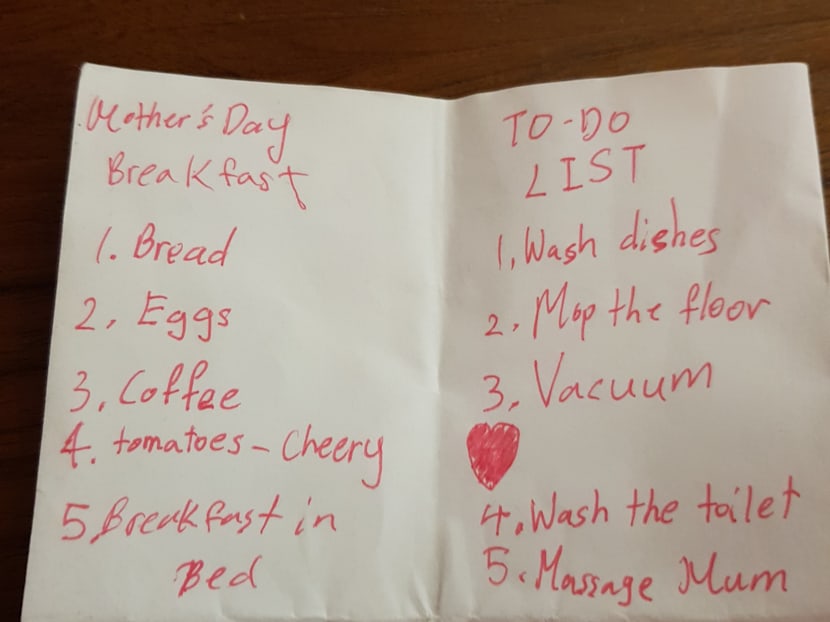 Mother's Day
Breakfast
1. Bread
2, Eggs
3, Coffee
4. tomatoes - Cheery
5, Breakfast in
Bed
TO-DO
LIST
1, Wash dishes
2, Mop the floor
3, Vacuum
4, Wash the toilet
5. Massage Mum